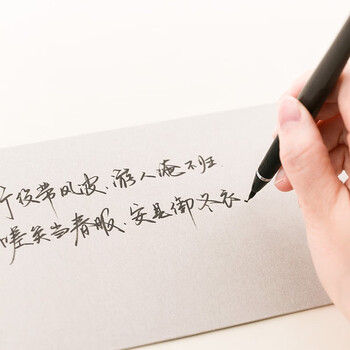 行役带风波，游人淹不归
嗟矣当春服，安御冬衣